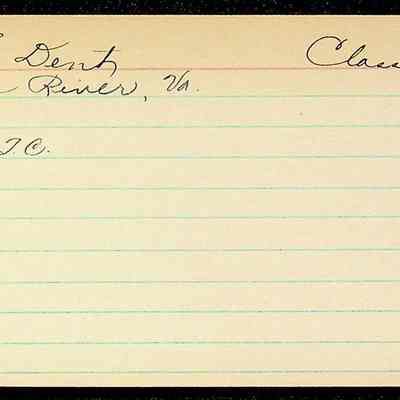 Dent Class
River, Va.
T.C.